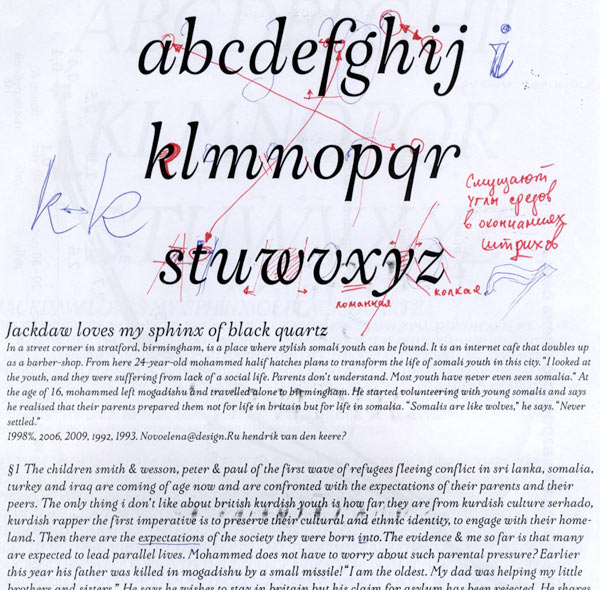 abcdefghij i
klmnopqr
k↔k
Смущают
углы срезов
в окончаниях
штрихов
stuwvxyz
ломанная
колкая
Jackdaw loves my sphinx of black quartz
In a street corner in stratford, birmingham, is a place where stylish somali youth can be found. It is an internet cafe that doubles up
as a barber-shop. From here 24-year-old mohammed halif hatches plans to transform the life of somali youth in this city. “I looked at
the youth, and they were suffering from lack of a social life. Parents don't understand. Most youth have never even seen somalia.” At
the age of 16, mohammed left mogadishu and travelled alone to birmingham. He started volunteering with young somalis and says
he realised that their parents prepared them not for life in britain but for life in somalia. “Somalis are like wolves,” he says. “Never
settled.”
1998%, 2006, 2009, 1992, 1993. Novoelena@design.Ru hendrik van den keere?
§1 The children smith & wesson, peter & paul of the first wave of refugees fleeing conflict in sri lanka, somalia,
turkey and iraq are coming of age now and are confronted with the expectations of their parents and their
peers. The only thing i don't like about british kurdish youth is how far they are from kurdish culture serhado,
kurdish rapper the first imperative is to preserve their cultural and ethnic identity, to engage with their home-
land. Then there are the expectations of the society they were born into. The evidence & me so far is that many
are expected to lead parallel lives. Mohammed does not have to worry about such parental pressure? Earlier
this year his father was killed in mogadishu by a small missile! “I am the oldest. My dad was helping my little
brothers and sisters.” He says he wishes to stay in britain but his claim for asylum has been rejected. He shares